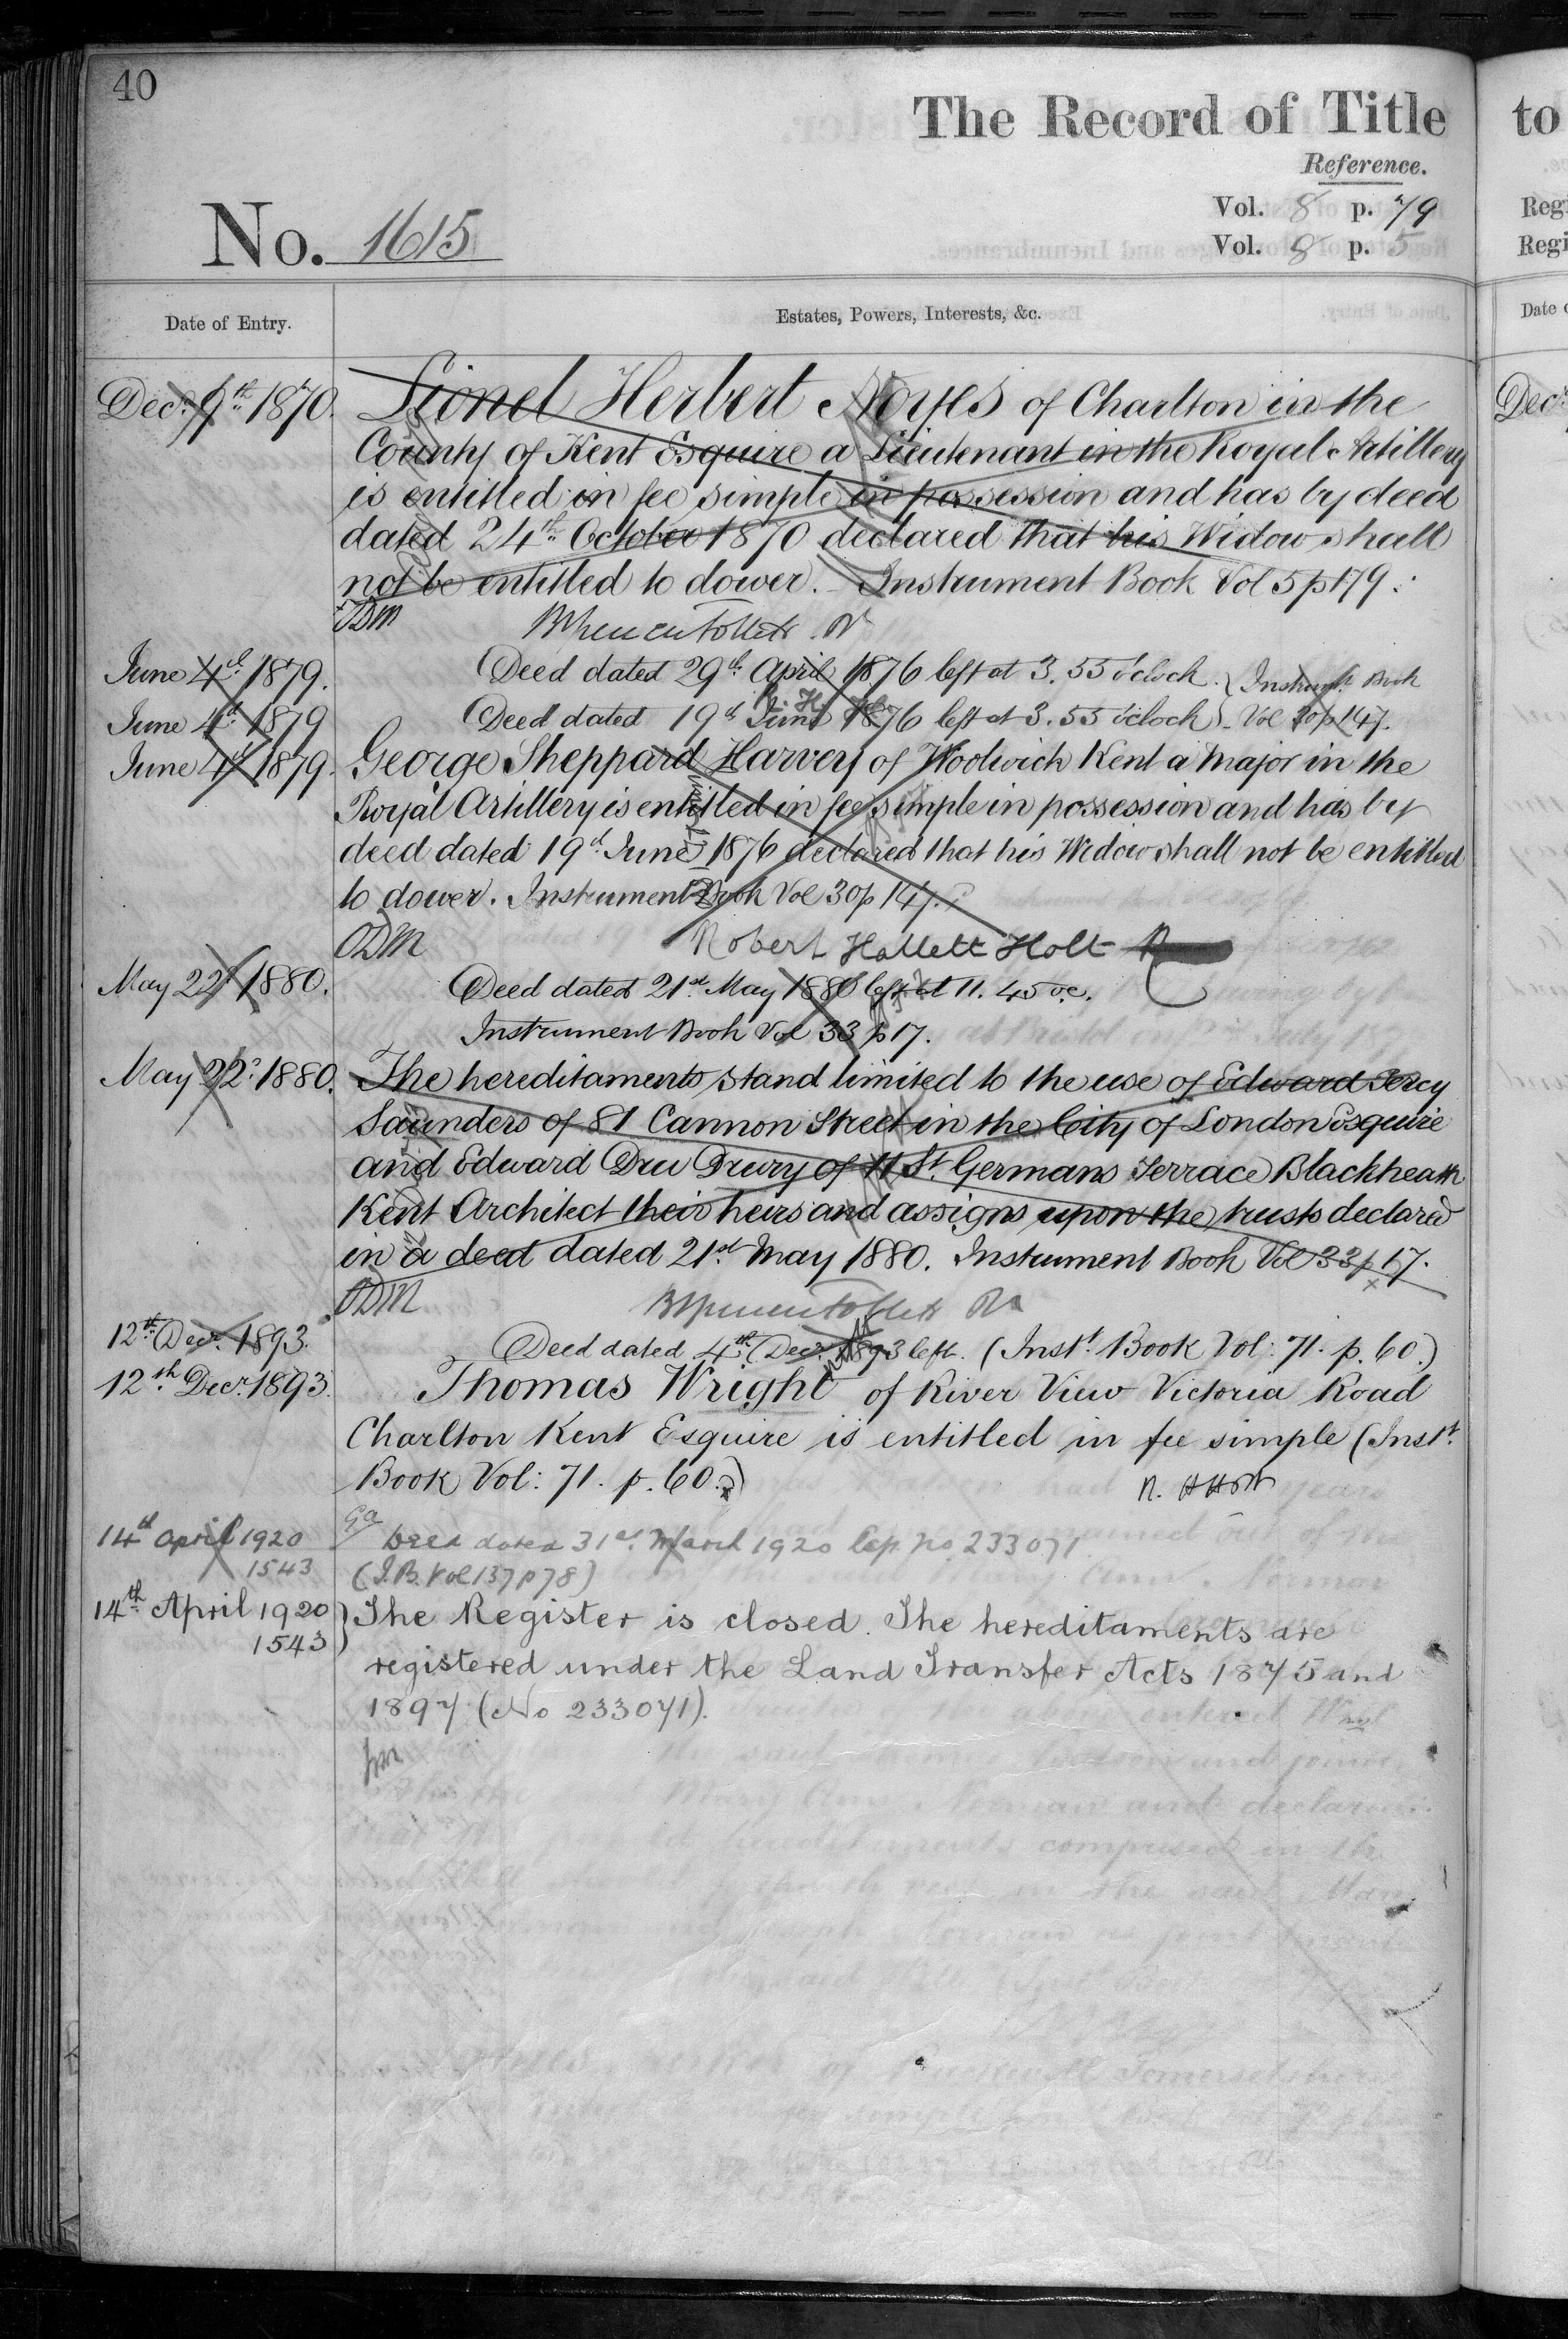 40
The Record of Title
to
Reference.
Vol. 8 p. 79
Vol. 8 p. 5
No. 1615
Regi
Regi
Date of Entry.
Estates, Powers, Interests, &c.
Date o
Decr. 9th. 1870. Lionel Herbert Noyes of Charlton in the
Decr
County of Kent Esquire a Lieutenant in the Royal Artillery
is entitled in fee simple in possession and has by deed
dated 24th. October 1870 declared that his Widow shall
not be entitled to dower. Instrument Book Vol 5 p 179.
ODM
June 4th 1879. Deed dated 29th April 1876 left at 3.55 o'clock
June 4th 1879 Deed dated 19th June 1876 left at 3.55 o'clock
Instrumt. Book
Vol 30 p 147.
June 4th 1879. George Sheppard Harvey of Woolwich Kent a Major in the
Royal Artillery is entitled in fee simple in possession and has by
deed dated 19th June 1876 declared that his Widow shall not be entitled
to dower. Instrument Book Vol 30 p 147.
ODM Robert Hallett Holt R
May 22d 1880. Deed dated 21st. May 1880 left at 11.45 o.c.
Instrument Book Vol 33 p 17.
May 22d. 1880. The hereditaments stand limited to the use of Edward Percy
Saunders of 81 Cannon Street in the City of London Esquire
and Edward Dru Drury of 11 St. Germans Terrace Blackheath
Kent Architect their heirs and assigns upon the trusts declared
in a deed dated 21st. May 1880. Instrument Book Vol 33 p 17.
ODM
12th. Decr. 1893. Deed dated 4th. Decr. 1893 left. (Inst. Book Vol: 71. p. 60.)
12th Decr. 1893. Thomas Wright of River View Victoria Road
Charlton Kent Esquire is entitled in fee simple (Inst.
Book Vol: 71. p. 60.)
R. HH
14th April 1920 Deed dated 31st. March 1920 Cap. No. 233071
1543 (I.B. Vol 137 p 78)
14th April 1920 The Register is closed. The hereditaments are
1543
registered under the Land Transfer Acts 1875 and
1897 (No 233071).